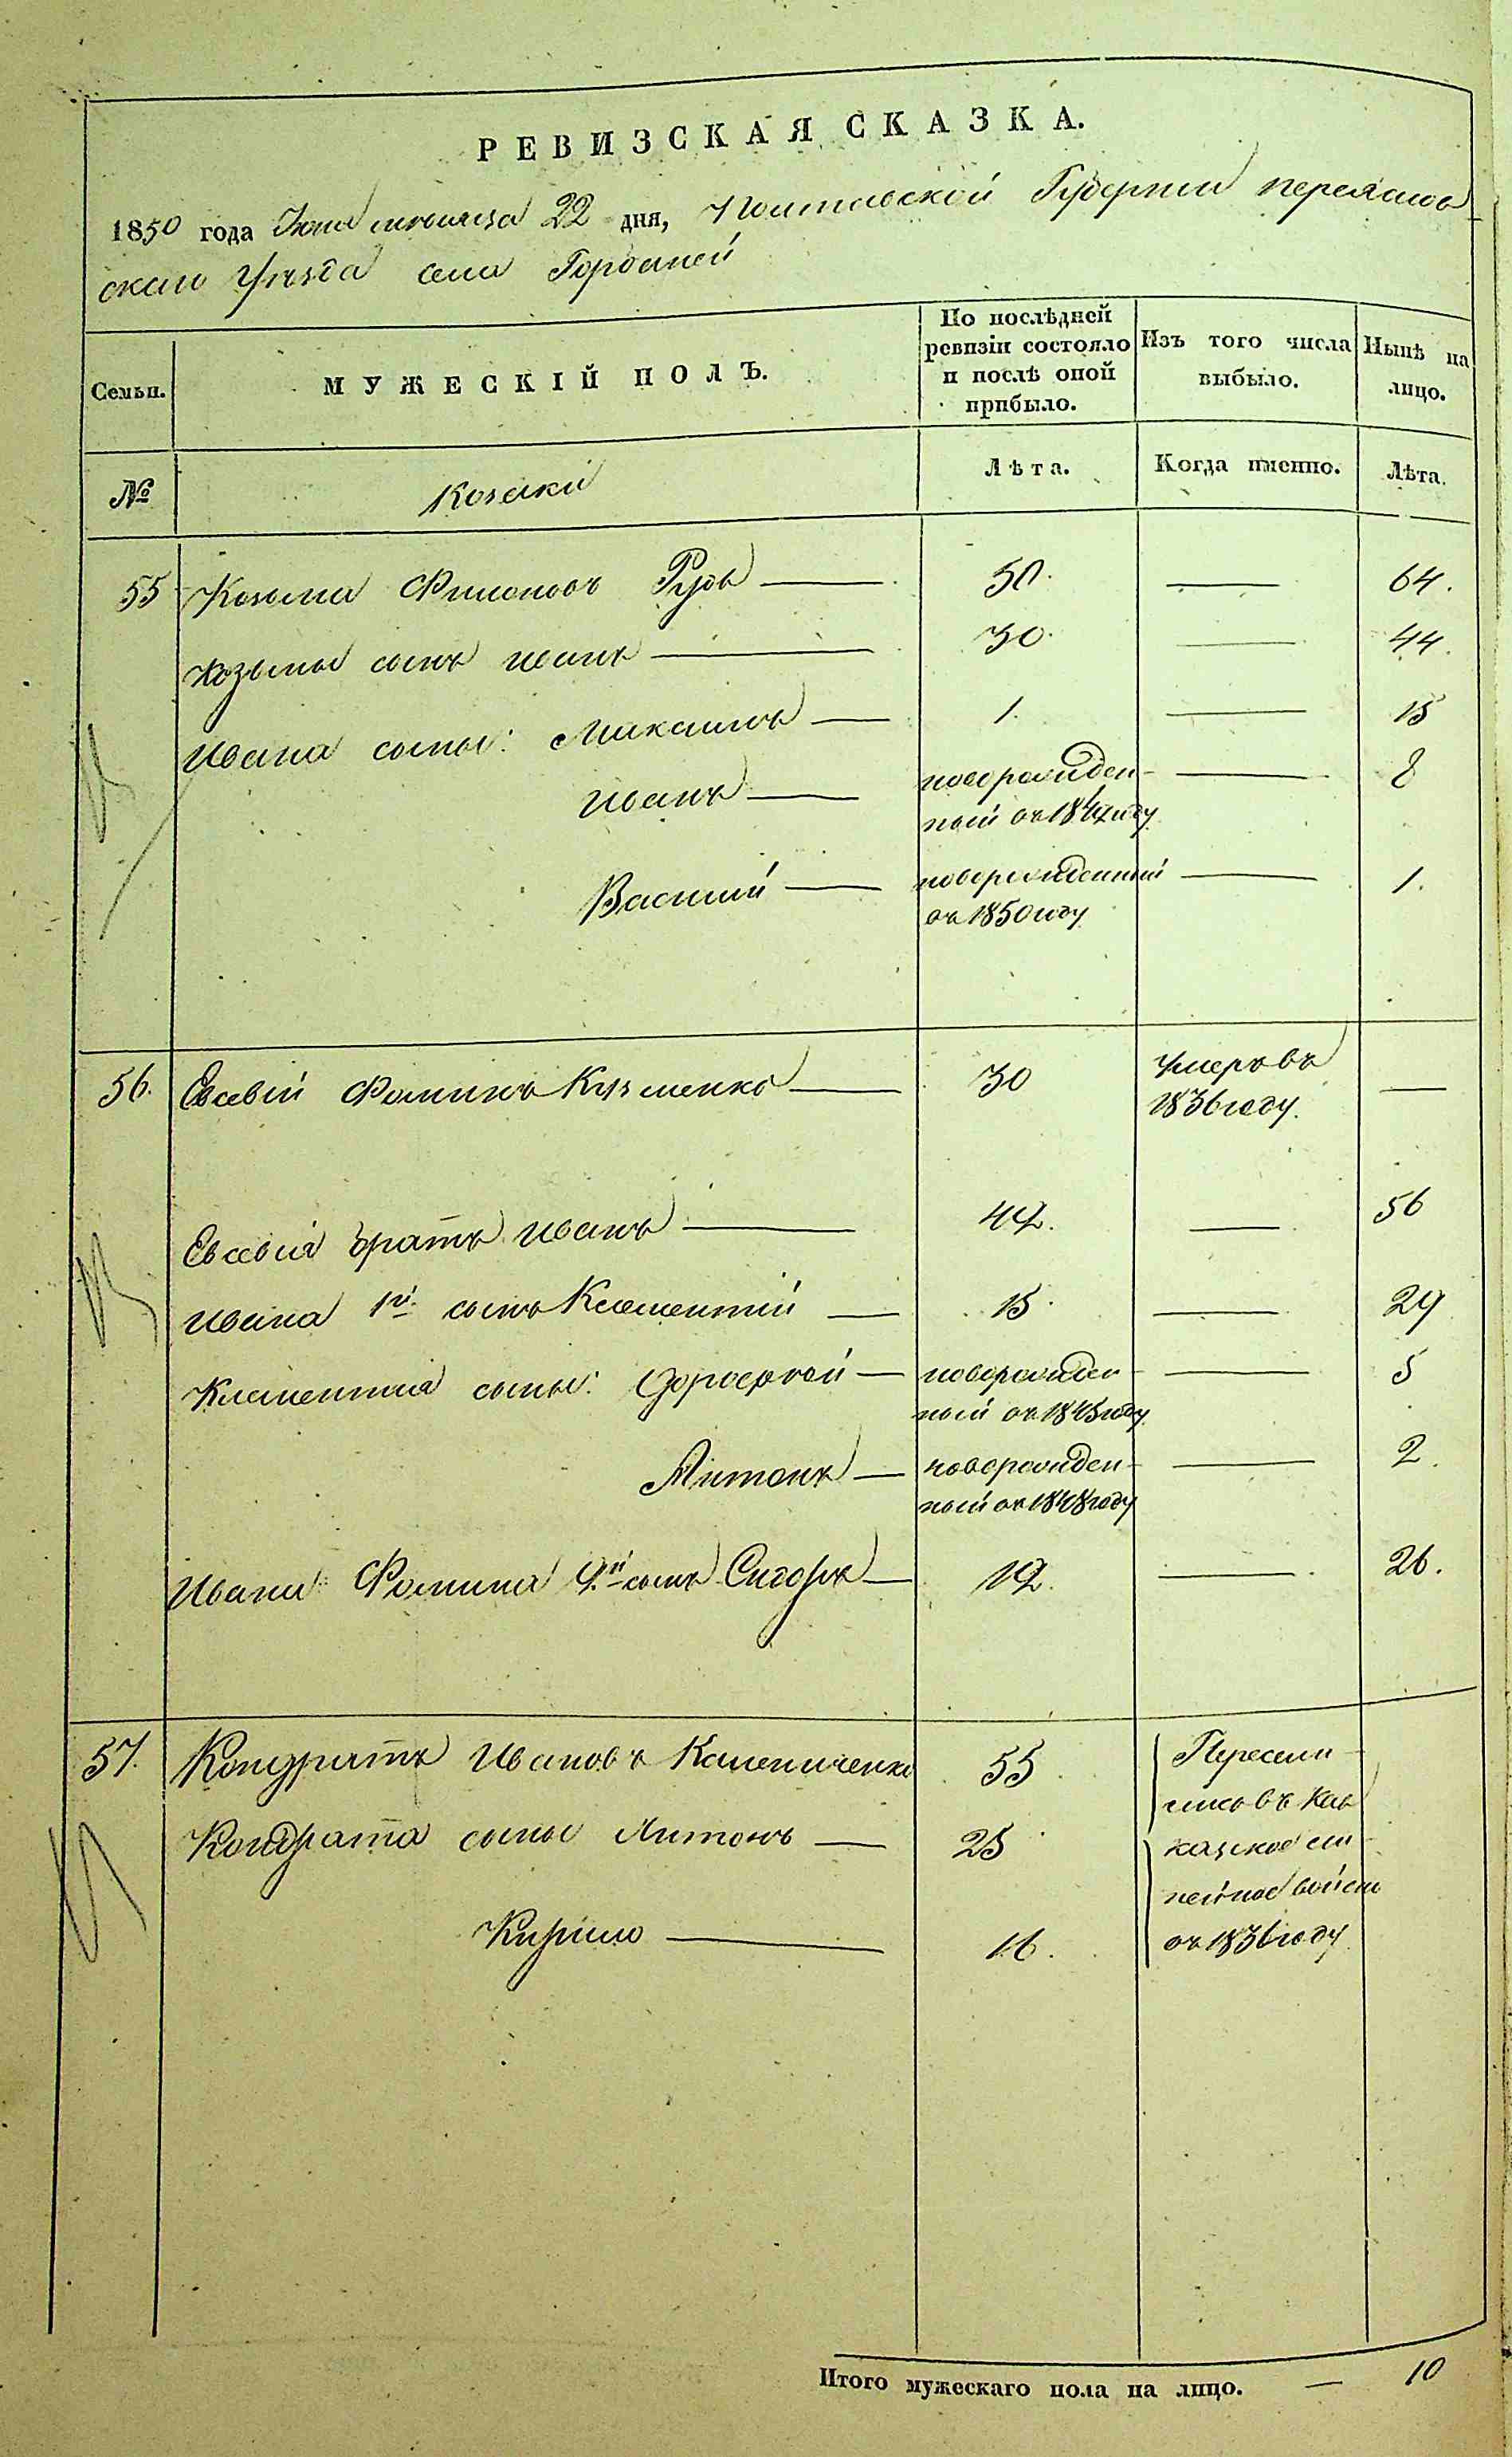 РЕВИЗСКАЯ СКАЗКА.
1850 года Июня месяца 22 дня, Полтавской Губернии переяслов-
скаго Уѣзда села Горбаней
Семьи.
МУЖЕСКІЙ ПОЛЪ.
По послѣдней ревизіи состояло и послѣ оной прибыло.
Изъ того числа выбыло.
Нынѣ на лицо.
№
Козаки
Лѣта.
Когда именно.
Лѣта.
55 Козьма Филоновъ Рудь — 50. — 64.
Козьмы сынъ иванъ — 30. — 44.
Ивана сыны: Михаилъ — 1. — 15
иванъ — новорожден- — 8
ный въ 1842 году
Василій — новорожденный — 1.
въ 1850 году
56. Евсевій Фоминъ Кузменко — 30 умеръ въ —
1836 году.
Евсевія братъ иванъ — 42. — 56
ивана 1й. сынъ Клементій — 15. — 29
Клементія сыны: — новорожден- — 5
ный въ 1845 году
Антонъ — новорожден- — 2.
ный въ 1848 году
Ивана Фомина 2й сынъ Сидоръ — 12. — 26.
57. Кондратъ Ивановъ Калениченко 55 Пересели-
лись въ Кав
Кондрата сыны Антонъ — 25 казкое ли-
нейное войско
Кирило — 16. въ 1836 году
Итого мужескаго пола на лицо. — 10